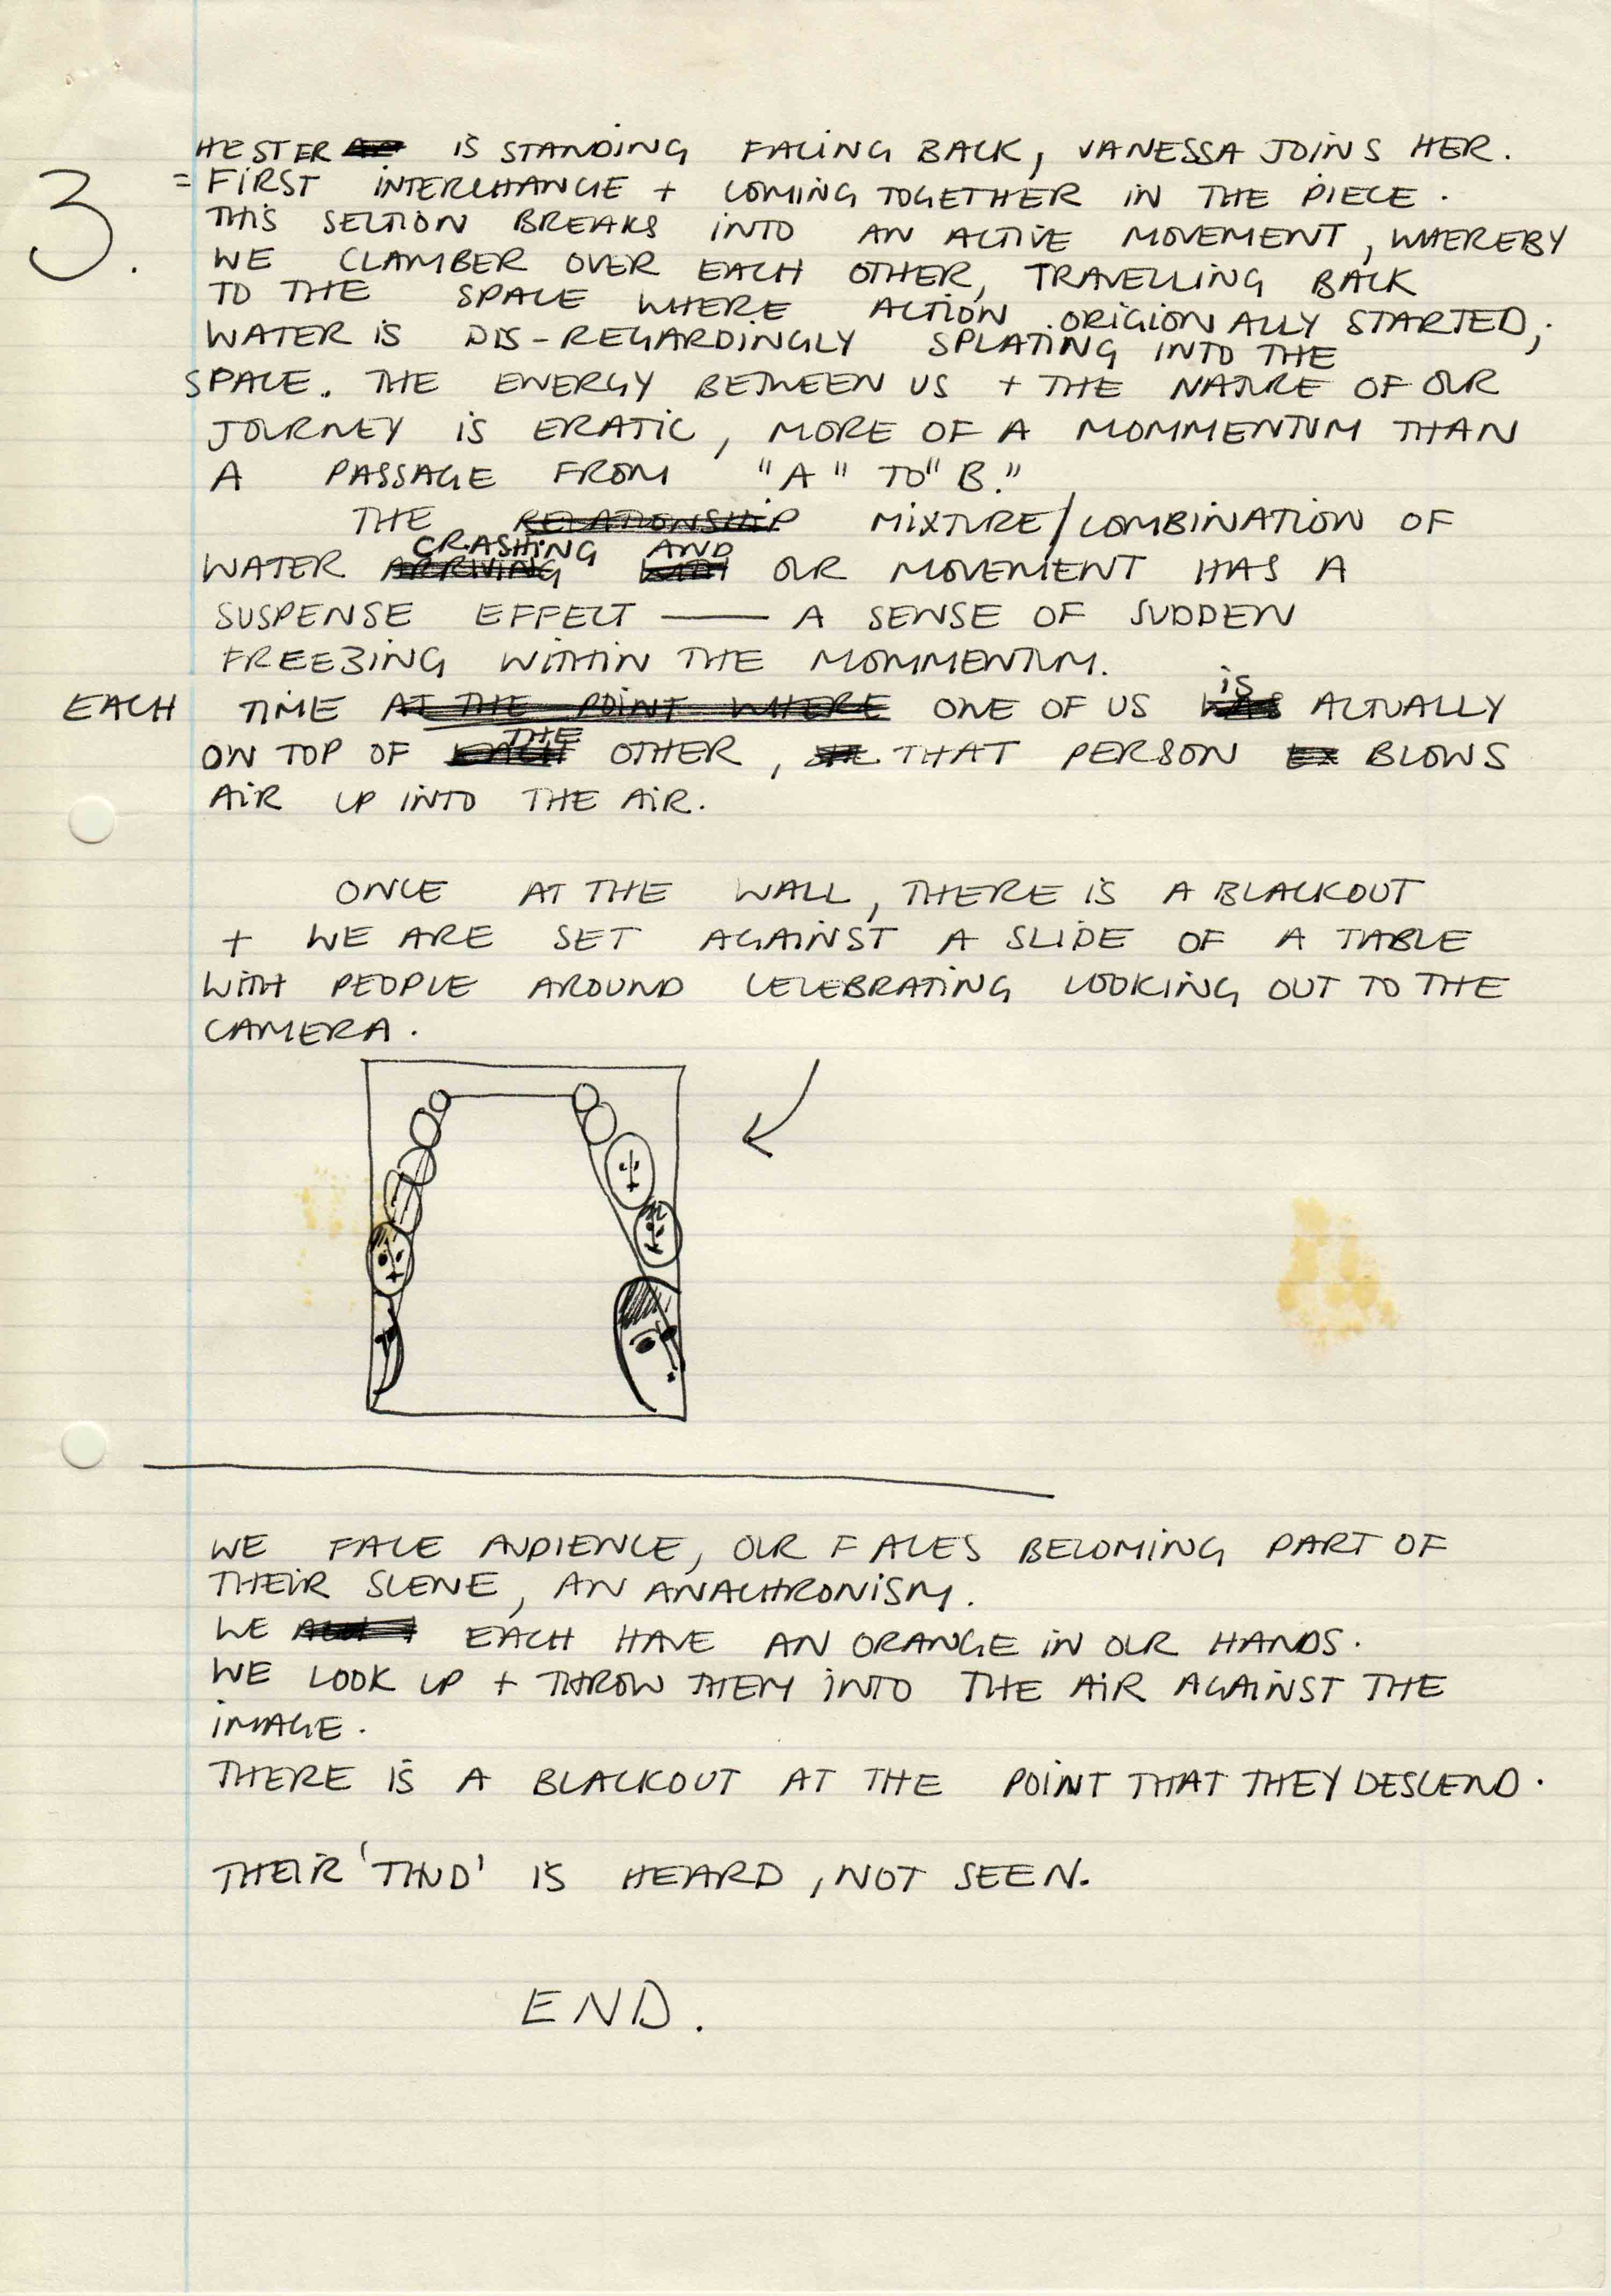 3.
HESTER IS STANDING FACING BACK, VANESSA JOINS HER.
= FIRST INTERCHANGE + COMING TOGETHER IN THE PIECE.
THIS SECTION BREAKS INTO AN ACTIVE MOVEMENT, WHEREBY
WE CLAMBER OVER EACH OTHER, TRAVELLING BACK
TO THE SPACE WHERE ACTION ORIGIONALLY STARTED;
WATER IS DIS-REGARDINGLY SPLATING INTO THE
SPACE. THE ENERGY BETWEEN US + THE NATURE OF OUR
JOURNEY IS ERATIC, MORE OF A MOMMENTUM THAN
A PASSAGE FROM "A" TO "B."
THE RELATIONSHIP MIXTURE/COMBINATION OF
CRASHING AND
WATER ARRIVING WITH OUR MOVEMENT HAS A
SUSPENSE EFFECT — A SENSE OF SUDDEN
FREEZING WITHIN THE MOMMENTUM.
is
EACH TIME AT THE POINT WHERE ONE OF US WAS ACTUALLY
THE
ON TOP OF EACH OTHER, THAT PERSON EX BLOWS
AIR UP INTO THE AIR.
ONCE AT THE WALL, THERE IS A BLACKOUT
+ WE ARE SET AGAINST A SLIDE OF A TABLE
WITH PEOPLE AROUND CELEBRATING LOOKING OUT TO THE
CAMERA.
WE FACE AUDIENCE, OUR FACES BECOMING PART OF
THEIR SCENE, AN ANACHRONISM.
WE EACH HAVE AN ORANGE IN OUR HANDS.
WE LOOK UP + THROW THEM INTO THE AIR AGAINST THE
IMAGE.
THERE IS A BLACKOUT AT THE POINT THAT THEY DESCEND.
THEIR 'THUD' IS HEARD, NOT SEEN.
END.